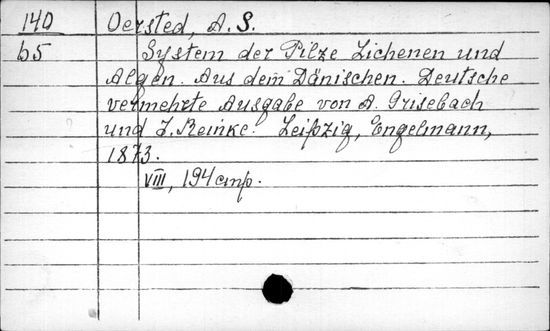 140 Oersted, A. S.
b5 System der Pilze Lichenen und
Algen. Aus dem Dänischen. Deutsche
vermehrte Ausgabe von A. Grisebach
und J. Reinke. Leipzig, Engelmann,
1873.
VIII, 194 cmp.